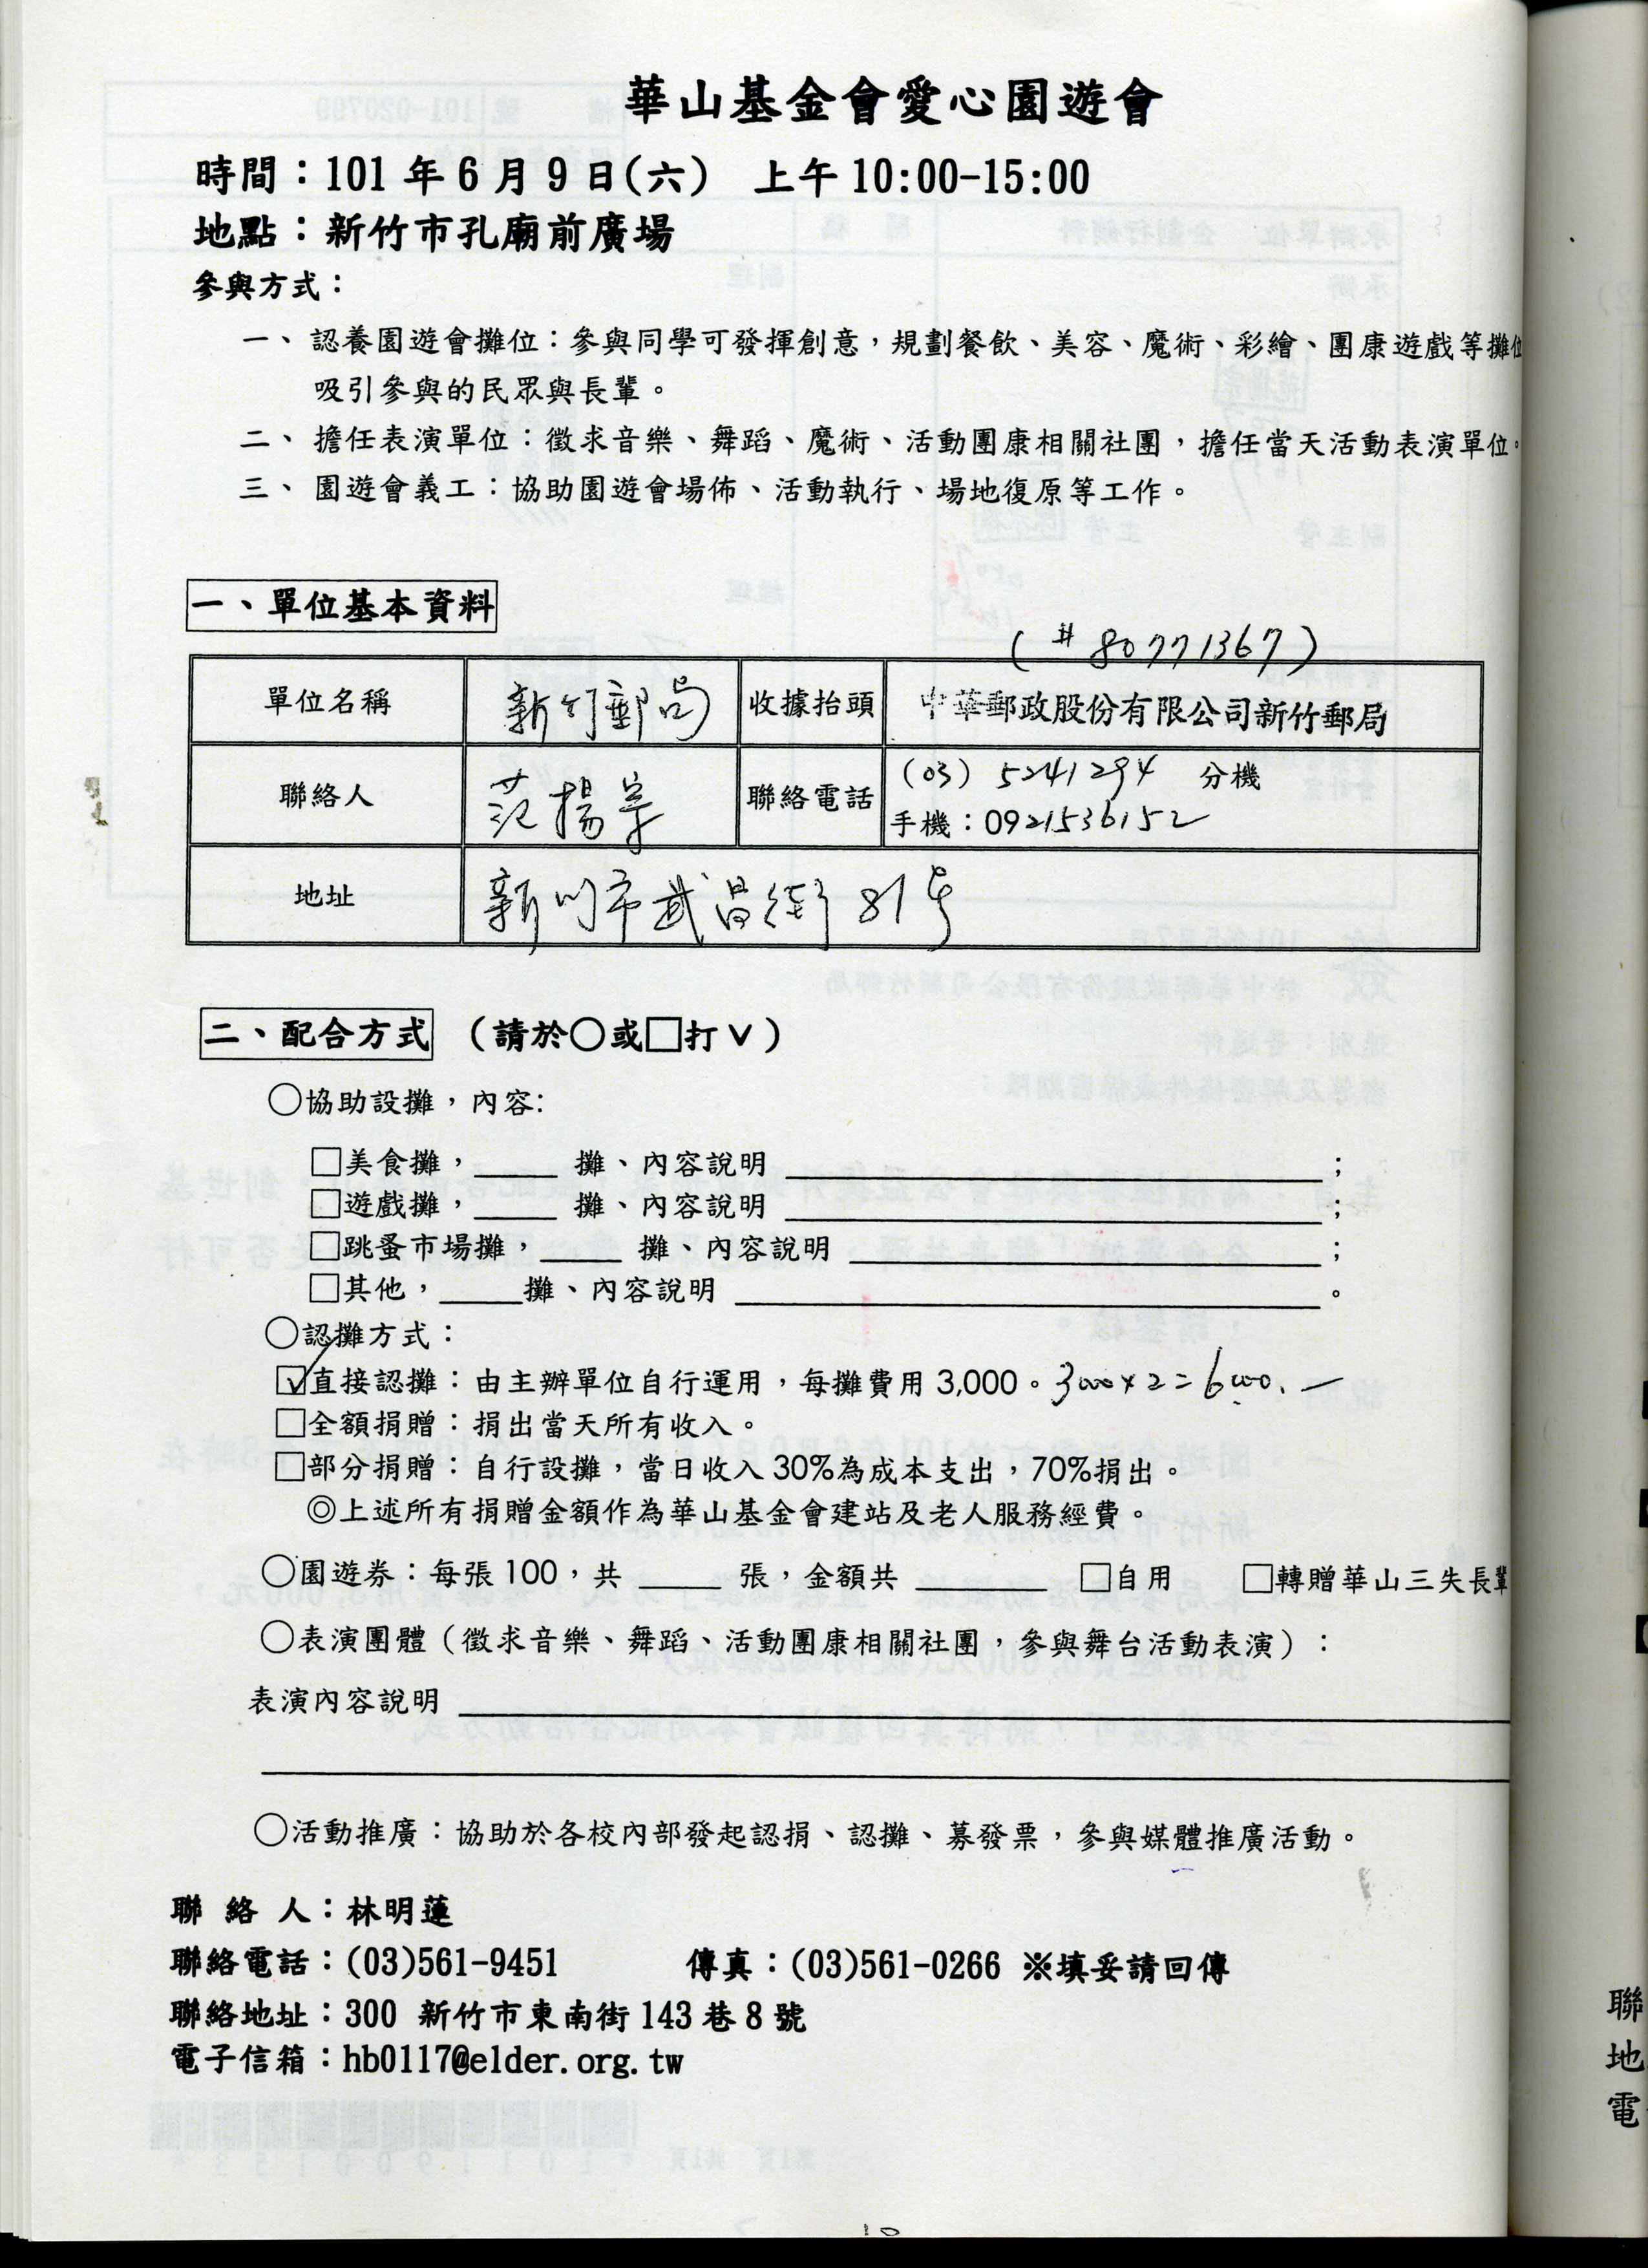 華山基金會愛心園遊會
時間：101 年 6 月 9 日(六)　上午 10:00-15:00
地點：新竹市孔廟前廣場
參與方式：
一、 認養園遊會攤位：參與同學可發揮創意，規劃餐飲、美容、魔術、彩繪、團康遊戲等攤位
吸引參與的民眾與長輩。
二、 擔任表演單位：徵求音樂、舞蹈、魔術、活動團康相關社團，擔任當天活動表演單位。
三、 園遊會義工：協助園遊會場佈、活動執行、場地復原等工作。
一、單位基本資料
(#80771367)
單位名稱 新竹郵局 收據抬頭 中華郵政股份有限公司新竹郵局
聯絡人 范揚 聯絡電話 (03) 5241294 分機
手機：0921536152
地址 新竹市武昌街 81号
二、配合方式 （請於○或□打ˇ）
○協助設攤，內容:
□美食攤，_____ 攤、內容說明 ______________________________；
□遊戲攤，_____ 攤、內容說明 ______________________________；
□跳蚤市場攤，_____ 攤、內容說明 __________________________；
□其他，_____攤、內容說明 ________________________________。
○認攤方式：
☑直接認攤：由主辦單位自行運用，每攤費用 3,000。3000×2=6000.—
□全額捐贈：捐出當天所有收入。
□部分捐贈：自行設攤，當日收入 30%為成本支出，70%捐出。
◎上述所有捐贈金額作為華山基金會建站及老人服務經費。
○園遊券：每張 100，共 _____ 張，金額共 ________ □自用 □轉贈華山三失長輩
○表演團體（徵求音樂、舞蹈、活動團康相關社團，參與舞台活動表演）：
表演內容說明 ______________________________
○活動推廣：協助於各校內部發起認捐、認攤、募發票，參與媒體推廣活動。
聯 絡 人：林明蓮
聯絡電話：(03)561-9451 傳真：(03)561-0266 ※填妥請回傳
聯絡地址：300 新竹市東南街 143 巷 8 號
電子信箱：hb0117@elder.org.tw
聯
地
電